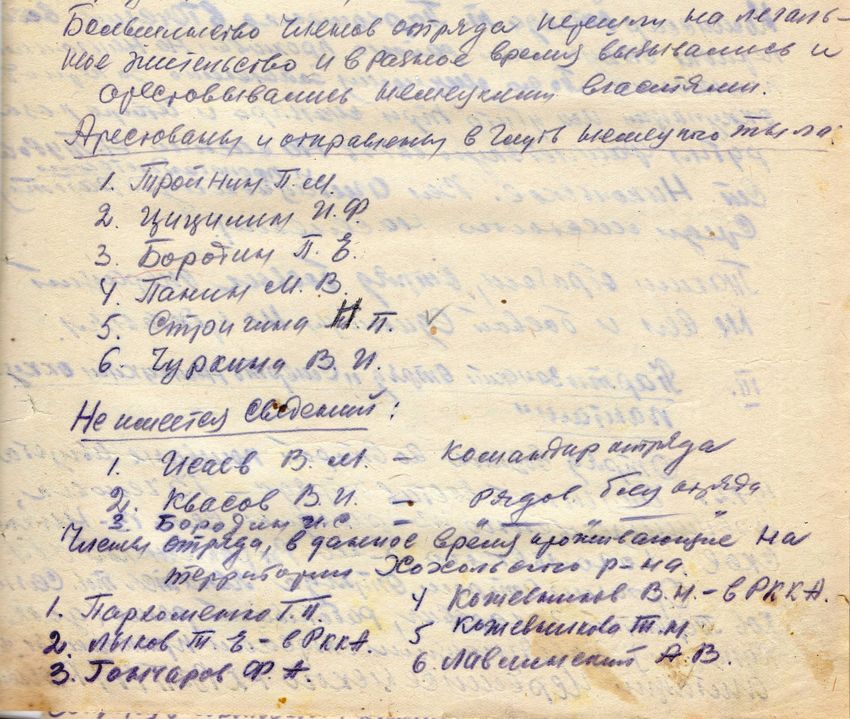 Большинство членов отряда перешли на легаль-
ное жительство и в разное время вызывались и
арестовывались немецкими властями.
Арестованы и отправлены в глубь немецкого тыла:
1. Тройнин П. М.
2. Цицилин И. Ф.
3. Боротин П. Е.
4. Панин М. В.
5. Стригина П.
6. Чуркина В. И.
Не имеется сведений:
1. Исаев В. М. – Командир отряда
2. Квасов В. И. – Рядов. бец отряда
3. Бородин И. С. – " – " – "
Члены отряда, в данное время проживающие на
территории Хохольского р-на.
1. Пархоменко Г. П.
2. Лыков Т. Е. – в РККА.
3. Гончаров Ф. А.
4 Кожевников В. Н. – в РККА.
5 Кожевникова Т. М.
6. Лавлинский А. В.